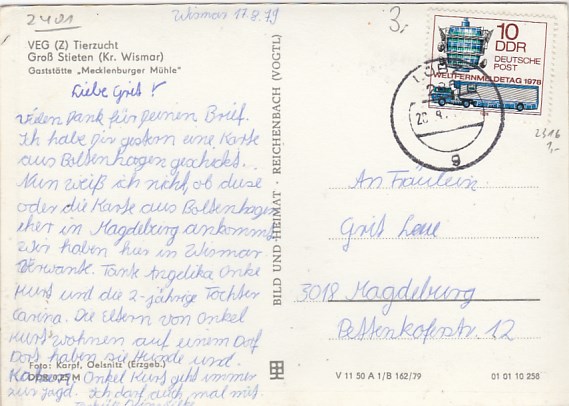 2401
Wismar 17.8.79
3,-
VEG (Z) Tierzucht
Groß Stieten (Kr. Wismar)
Gaststätte „Mecklenburger Mühle"
Liebe Grit!
vielen Dank für deinen Brief.
Ich habe dir gestern eine Karte
aus Boltenhagen geschickt.
Nun weiß ich nicht, ob diese
oder die Karte aus Boltenhagen
eher in Magdeburg ankommt.
Wir haben hier in Wismar
Verwante. Tante Angelika Onkel
Kurt und die 2-jährige Tochter
Carina. Die Eltern von Onkel
Kurt wohnen auf einem Dorf
Dort haben sie Hunde und
Foto: Karpf, Oelsnitz (Erzgeb.)
Onkel Kurt geht immer
zur Jagd. Ich darf auch mal mit.
BILD UND HEIMAT · REICHENBACH (VOGTL)
10
DDR
DEUTSCHE
POST
WELTFERNMELDETAG 1978
9
2316
1,-
An Fräulein
Grit
3018 Magdeburg
Pettenkoferstr. 12
V 11 50 A 1/B 162/79
01 01 10 256